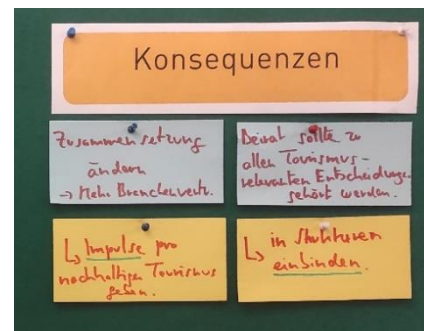 Konsequenzen
Zusammensetzung
ändern
→ Mehr Branchenvertr.
Beirat sollte zu
allen Tourismus-
relevanten Entscheidunge
gehört werden.
↳ Impulse pro
nachhaltigen Tourismus
geben.
↳ in Strukturen
einbinden.